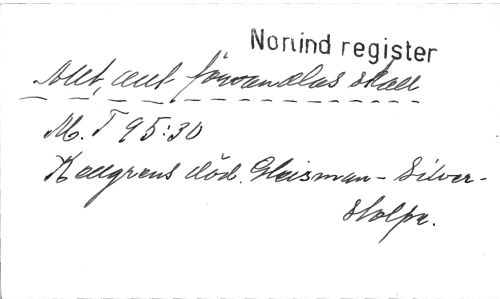 Norlind register
Allt, allt förvandlas skall
M. T 95:30
Kellgrens död. Gleisman - Silver-
stolpe.